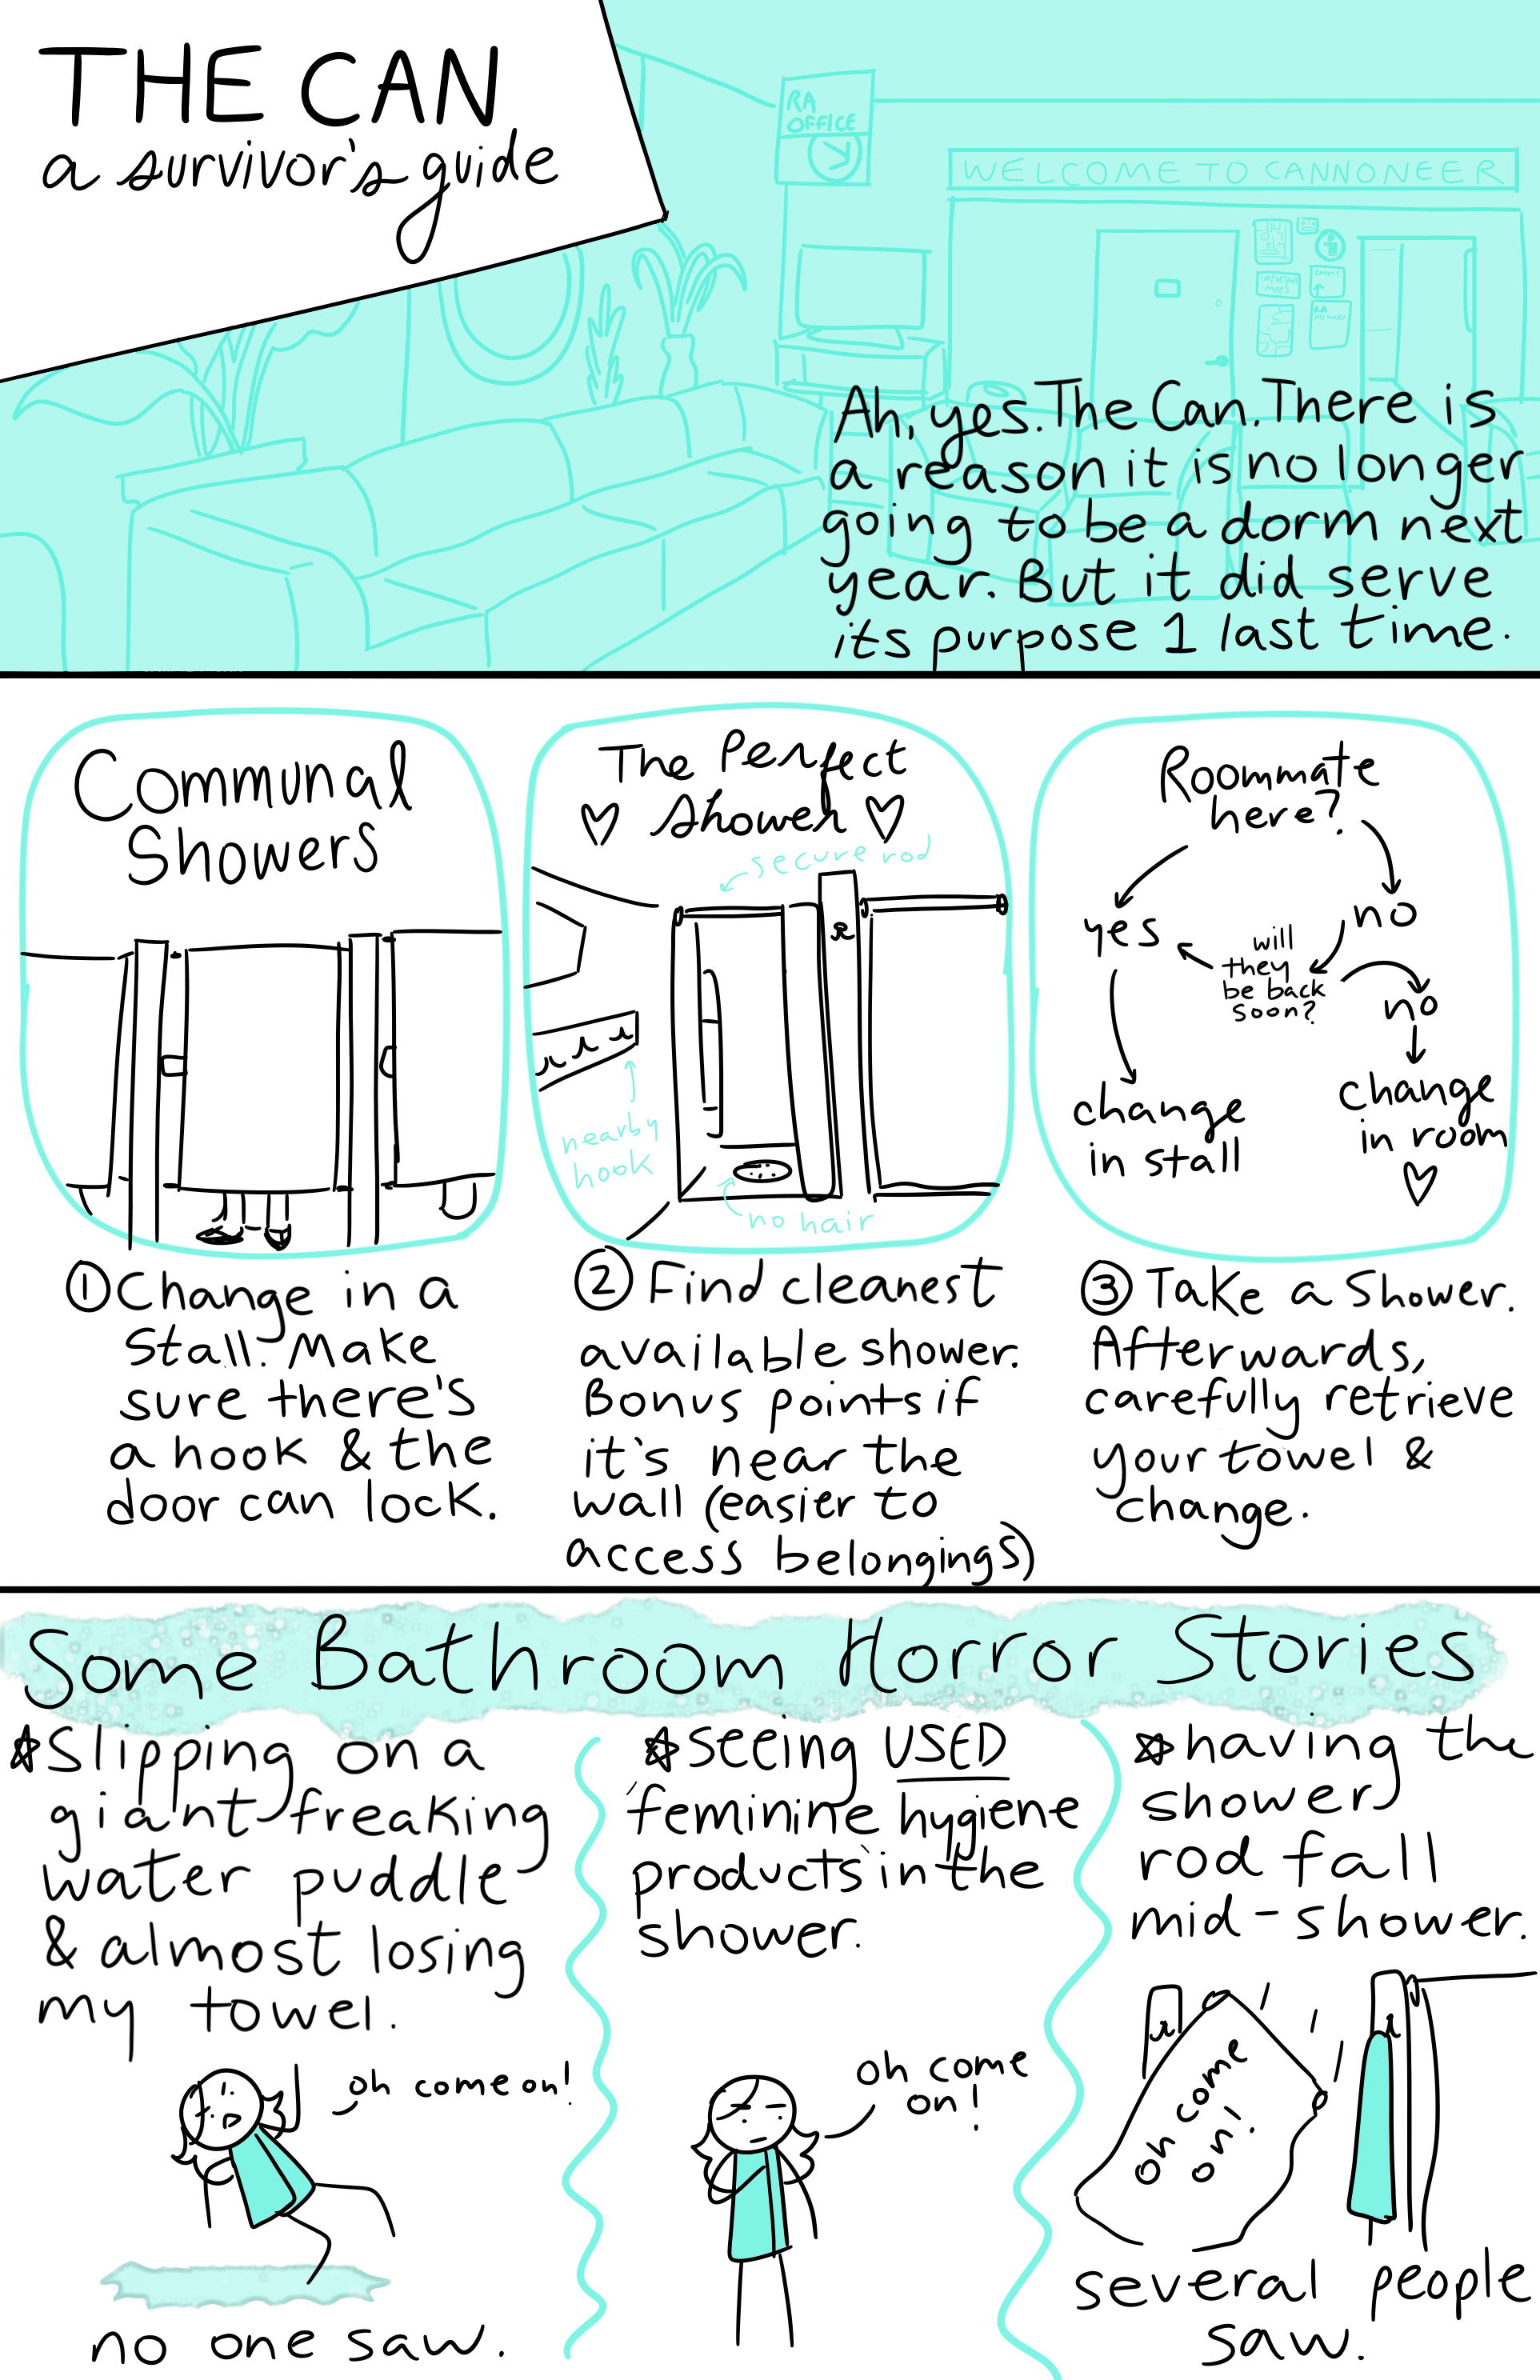 THE CAN
a survivor's guide
RA
OFFICE
WELCOME TO CANNONEER
IMPORTANT
MAPS
ROOMS
RA
Ah, yes. The Can. There is
a reason it is no longer
going to be a dorm next
year. But it did serve
its purpose 1 last time.
Communal
Showers
① Change in a
stall. Make
sure there's
a hook & the
door can lock.
The Perfect
♡ Shower ♡
secure rod
nearby
hook
no hair
② Find cleanest
available shower.
Bonus points if
it's near the
wall (easier to
access belongings)
Roommate
here?
yes
no
will
they
be back
soon?
no
change
in stall
change
in room
♡
③ Take a Shower.
Afterwards,
carefully retrieve
your towel &
change.
Some Bathroom Horror Stories
☆ Slipping on a
giant freaking
water puddle
& almost losing
my towel.
oh come on!
no one saw.
☆ seeing USED
'feminine hygiene
products' in the
shower.
oh come
on!
☆ having the
shower
rod fall
mid-shower.
oh come
on!
several people
saw.